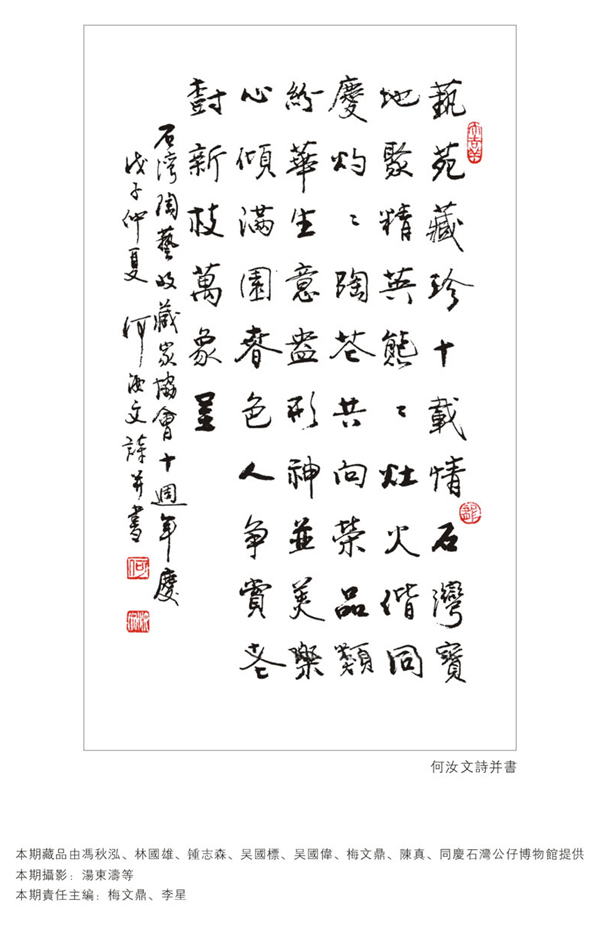 藝苑藏珍十載情石灣寶
地聚精英熊〻灶火偕同
慶灼〻陶芲共向榮品類
紛華生意盎形神並美樂
心傾滿園春色人爭賞老
尌新枝萬象呈
石灣陶藝收藏家協會十週年慶
戊子仲夏 何汝文詩并書
何汝文詩并書
本期藏品由馮秋泓、林國雄、锺志森、吴國標、吴國偉、梅文鼎、陳真、同慶石灣公仔博物館提供
本期攝影：湯東濤等
本期責任主編：梅文鼎、李星